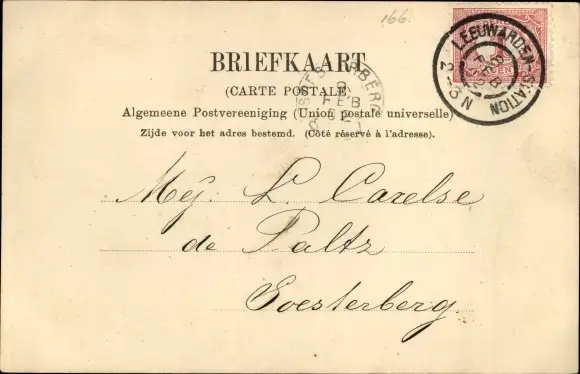 166.
BRIEFKAART
(CARTE POSTALE)
Algemeene Postvereeniging (Union postale universelle)
Zijde voor het adres bestemd. (Côté réservé à l'adresse).
LEEUWARDEN-STATION
8
FEB
2-3N
9
FEB
Mej. L. Carelse
de Paltz
Soesterberg.